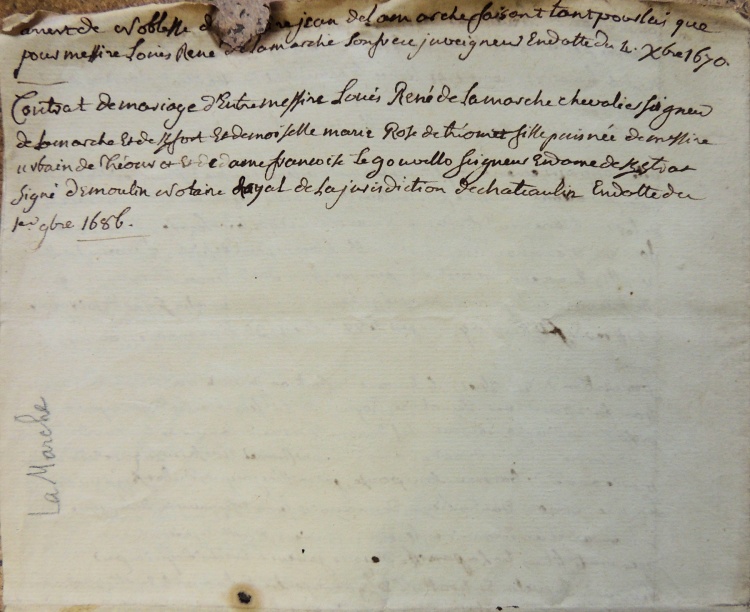 arrest de noblesse de jean de Lamarche faisant tant pour lui que
pour messire Louis René de Lamarche son frere juveigneur En datte du 4. Xbre 1670.
Contrat de mariage d'Entre messire Loüis René de Lamarche chevalier seigneur
de Lamarche Et de Et demoiselle marie Rose de fille puisnée de messire
urbain de Et de dame francoise le gouvello seigneur En dame de
signé Demoulin notaire Royal de La jurisdiction de chateaulin En datte du
1er 9bre 1686.
La Marche